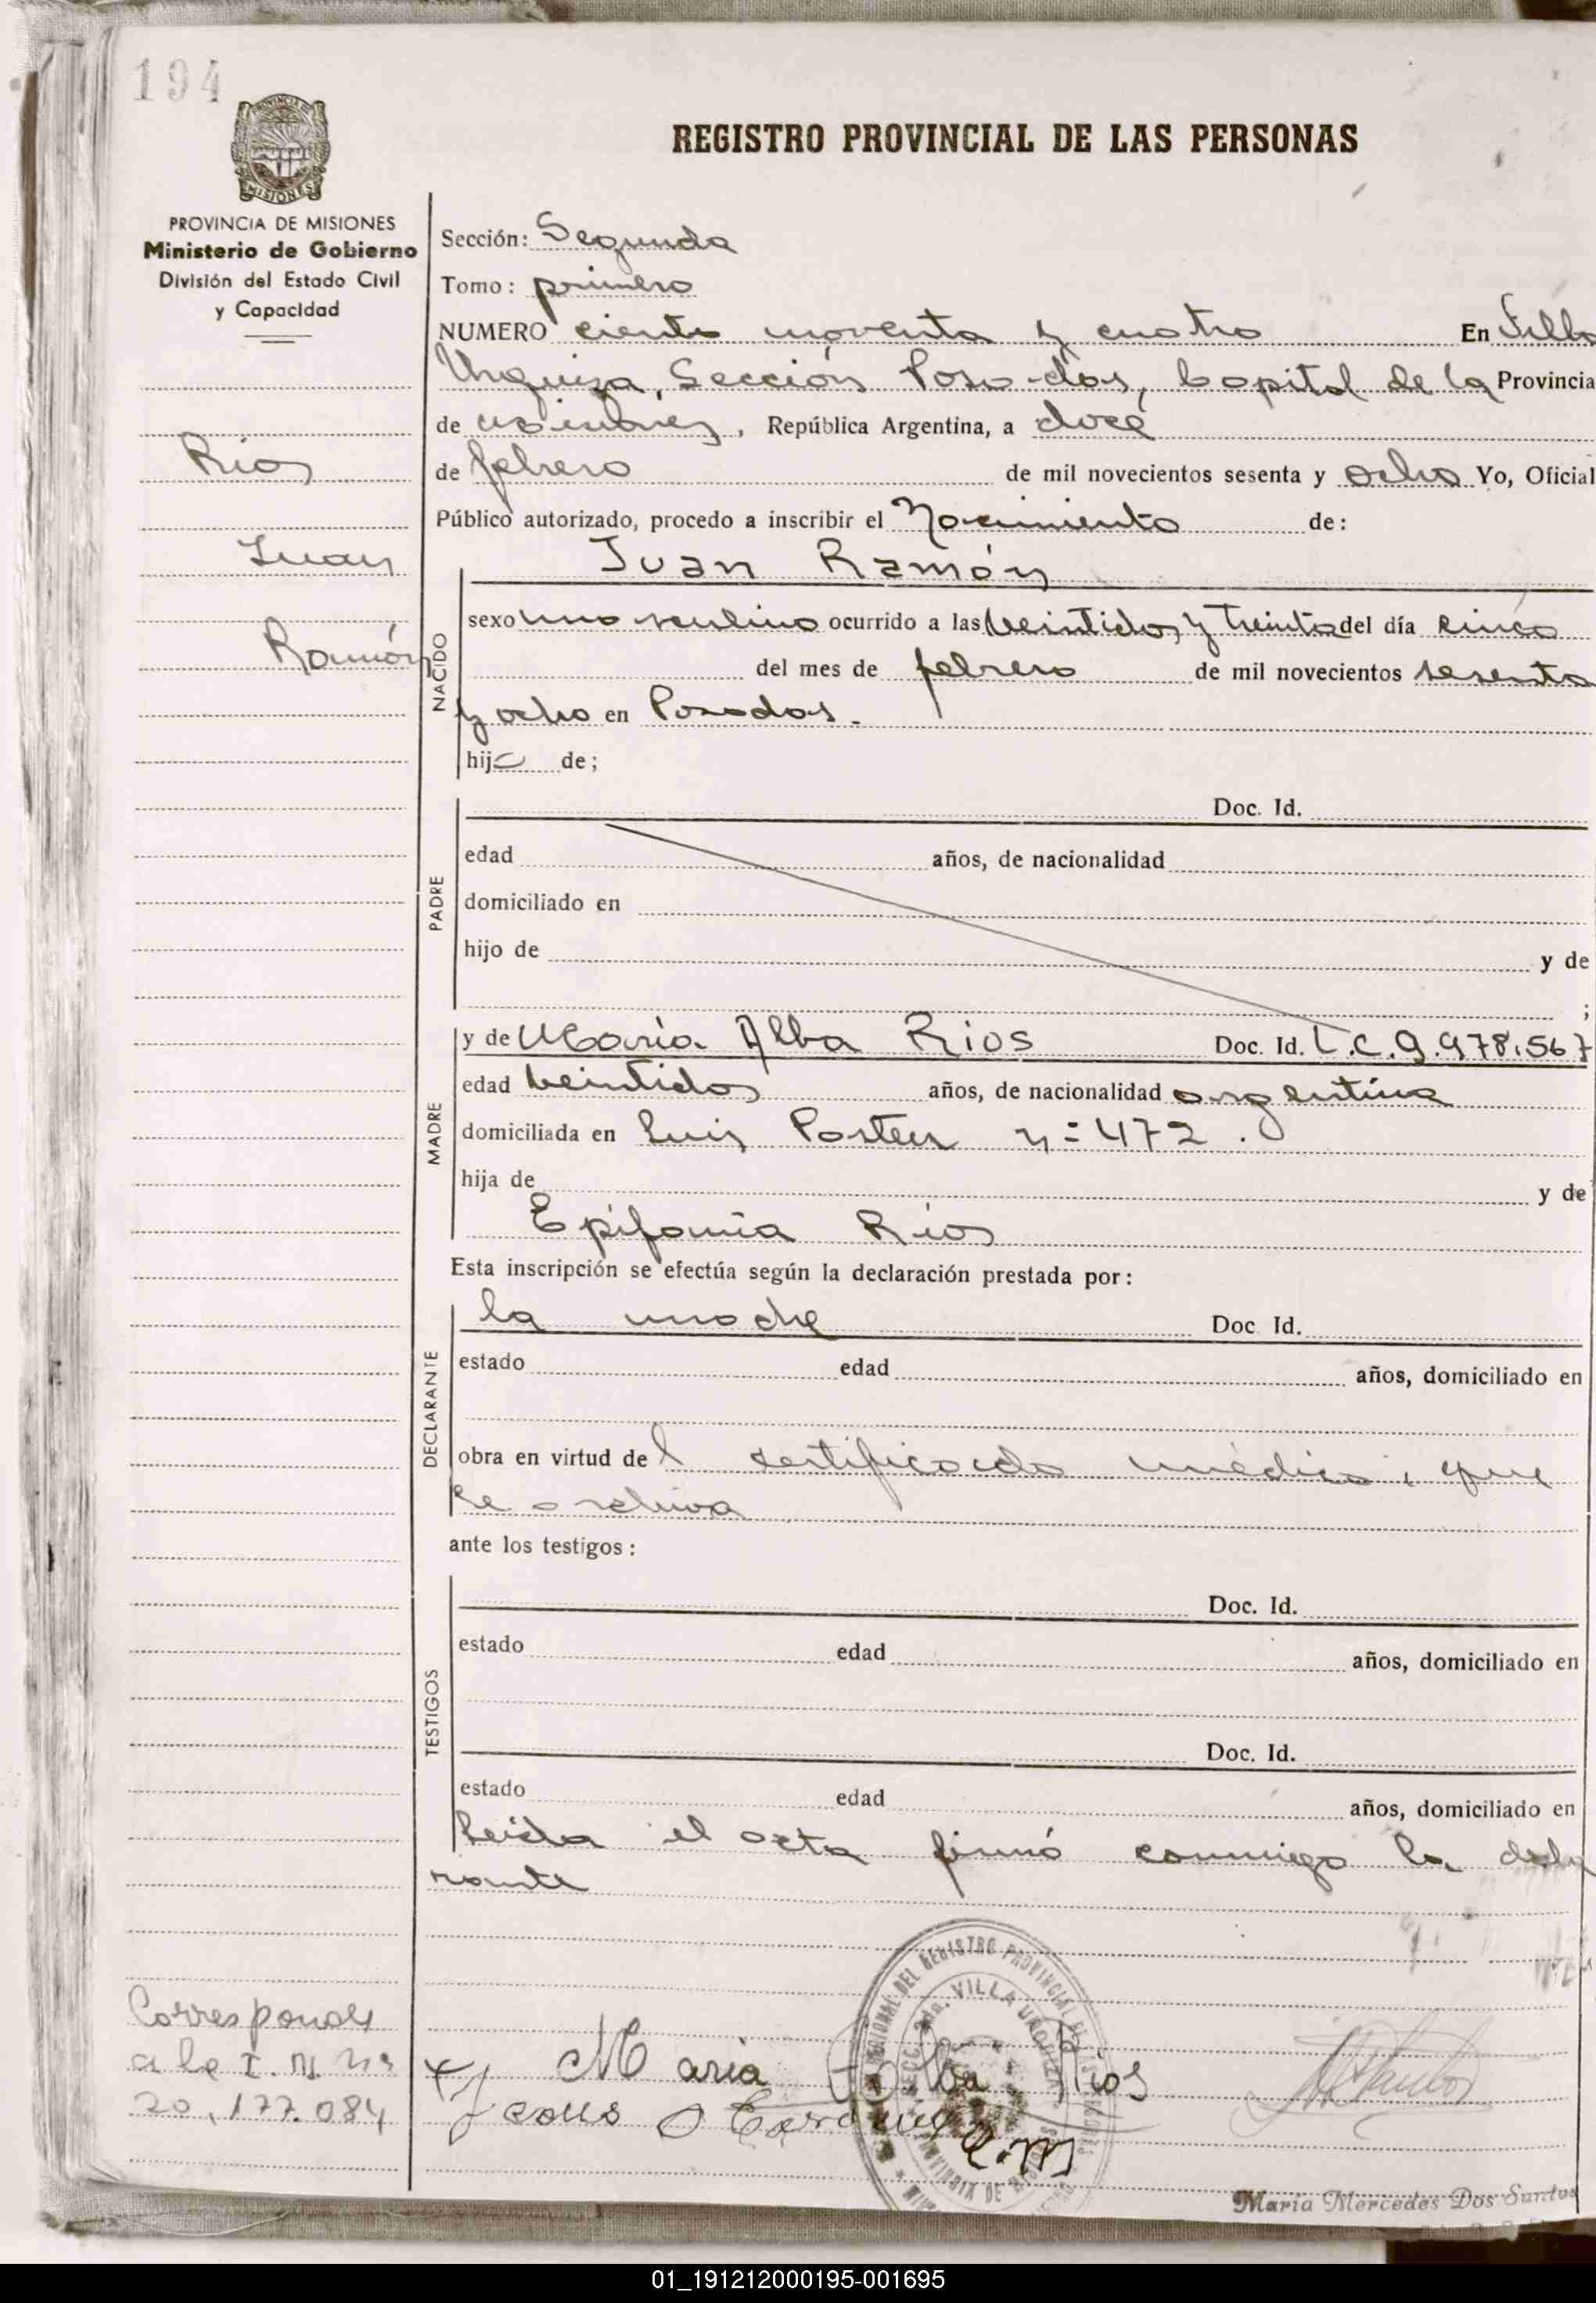 194
MISIONES
PROVINCIA DE MISIONES
Ministerio de Gobierno
División del Estado Civil
y Capacidad
REGISTRO PROVINCIAL DE LAS PERSONAS
Sección: Segunda
Tomo: primero
NUMERO ciento noventa y cuatro En Villa
Urquiza, Sección Posadas, Capital de la Provincia
de Misiones, República Argentina, a doce
de febrero de mil novecientos sesenta y ocho Yo, Oficial
Público autorizado, procedo a inscribir el Nacimiento de:
Rios
Juan
Ramón
Juan Ramón
NACIDO
sexo masculino ocurrido a las veintidos y treinta del día cinco
del mes de febrero de mil novecientos sesenta
y ocho en Posadas.
hijo de;
PADRE
Doc. Id.
edad años, de nacionalidad
domiciliado en
hijo de y de
;
MADRE
y de María Alba Rios Doc. Id. L.C.9.978.567
edad veintidos años, de nacionalidad argentina
domiciliada en Luis Pasteur n= 472.
hija de y de
Epifania Rios
Esta inscripción se efectúa según la declaración prestada por:
DECLARANTE
la madre Doc. Id.
estado edad años, domiciliado en
obra en virtud del certificado médico, que
se archiva
ante los testigos:
TESTIGOS
Doc. Id.
estado edad años, domiciliado en
Doc. Id.
estado edad años, domiciliado en
Leida el acta firmó conmigo la decla
rante
Corresponde
a la I. M. Nº
20,177.084
REGIONAL DEL REGISTRO PROVINCIAL DE
SECC. 2da. VILLA URQUIZA
María Alba Rios
María Mercedes Dos Santos
01_191212000195-001695